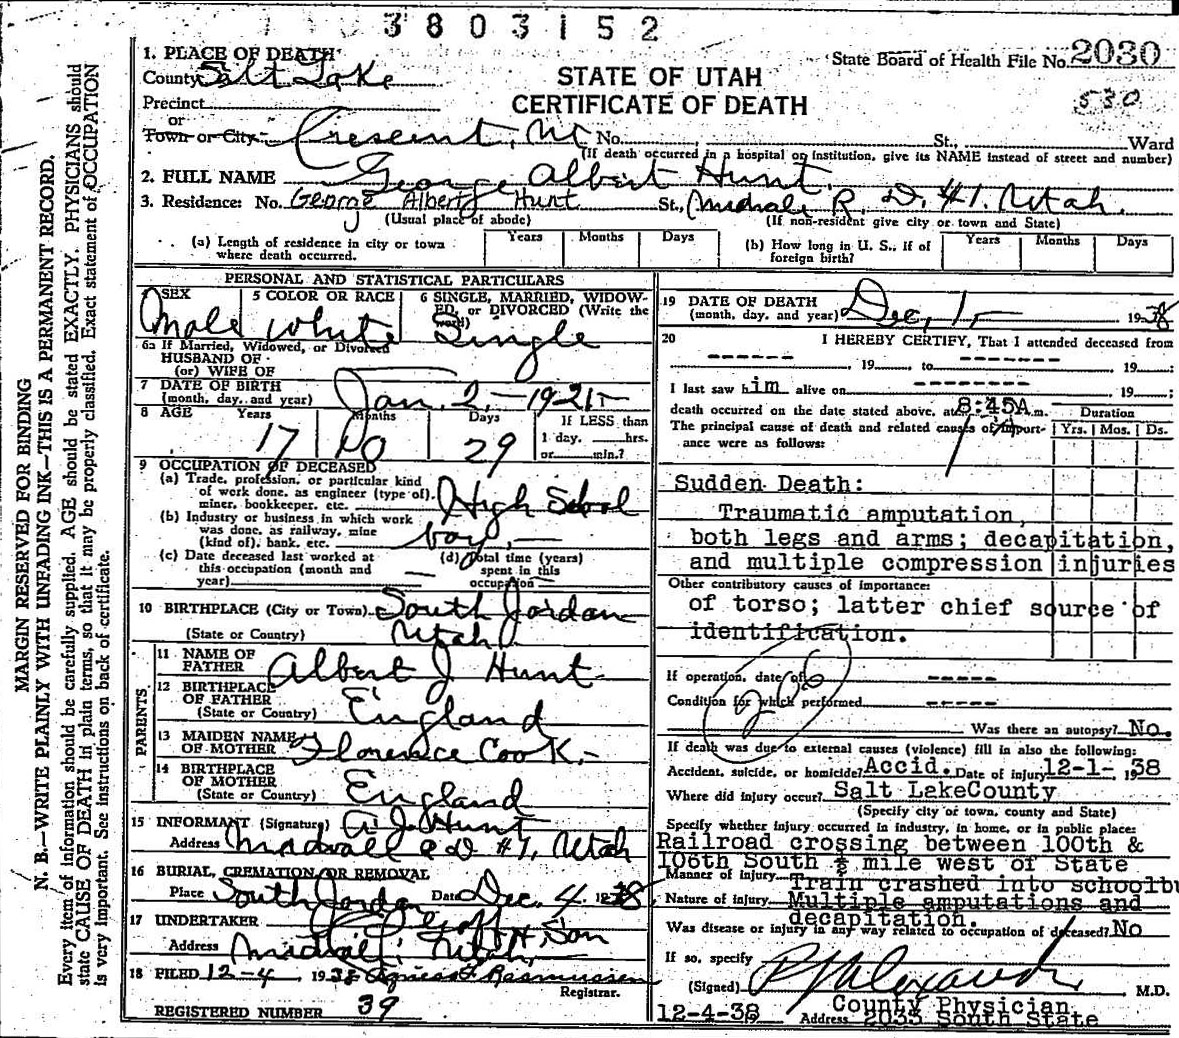 3803152
1. PLACE OF DEATH
County Salt Lake
State Board of Health File No. 2030
STATE OF UTAH
CERTIFICATE OF DEATH
530
Precinct
or
Town or City Cresent, Ut No. St., Ward
(If death occurred in a hospital or institution, give its NAME instead of street and number)
2. FULL NAME George Albert Hunt.
3. Residence: No. George Albert Hunt St., Midvale R. D. #1. Utah.
(Usual place of abode) (If non-resident give city or town and State)
(a) Length of residence in city or town where death occurred. Years Months Days
(b) How long in U. S., if of foreign birth? Years Months Days
PERSONAL AND STATISTICAL PARTICULARS
SEX 5 COLOR OR RACE 6 SINGLE, MARRIED, WIDOWED, or DIVORCED (Write the word)
Male White Single
6a If Married, Widowed, or Divorced
HUSBAND OF
(or) WIFE OF
7 DATE OF BIRTH
(month, day, and year) Jan. 2, - 1921-
8 AGE Years Months Days If LESS than
17 10 29 1 day, hrs.
or min.?
9 OCCUPATION OF DECEASED
(a) Trade, profession, or particular kind
of work done, as engineer (type of),
miner, bookkeeper, etc. High School
(b) Industry or business in which work
was done, as railway, mine
(kind of), bank, etc. boy, -
(c) Date deceased last worked at
this occupation (month and
year)
(d) Total time (years)
spent in this
occupation
10 BIRTHPLACE (City or Town) South Jordan
(State or Country) Utah
PARENTS
11 NAME OF
FATHER Albert J Hunt
12 BIRTHPLACE
OF FATHER
(State or Country) England
13 MAIDEN NAME
OF MOTHER Florence Cook, -
14 BIRTHPLACE
OF MOTHER
(State or Country) England
15 INFORMANT (Signature) A. J. Hunt
Address Midvale R D #1, Utah
16 BURIAL, CREMATION OR REMOVAL
Place South Jordan Date Dec. 4. 1938
17 UNDERTAKER Goff & Son
Address Midvale, Utah
18 FILED 12-4 1938 Agness F Rasmussen
Registrar.
REGISTERED NUMBER 39
19 DATE OF DEATH
(month, day, and year) Dec, 1- 1938
20 I HEREBY CERTIFY, That I attended deceased from
19 , to 19 ;
I last saw him alive on 19 ;
death occurred on the date stated above, at 8:45A m.
Duration
The principal cause of death and related causes of importance were as follows: Yrs. Mos. Ds.
Sudden Death:
Traumatic amputation,
both legs and arms; decapitation,
and multiple compression injuries
Other contributory causes of importance:
of torso; latter chief source of
identification.
206
If operation, date of
Condition for which performed
Was there an autopsy? No.
If death was due to external causes (violence) fill in also the following:
Accident, suicide, or homicide? Accid. Date of injury 12-1- 1938
Where did injury occur? Salt LakeCounty
(Specify city or town, county and State)
Specify whether injury occurred in industry, in home, or in public place:
Railroad crossing between 100th &
106th South ½ mile west of State
Manner of injury Train crashed into schoolbu
Nature of injury Multiple amputations and
decapitation.
Was disease or injury in any way related to occupation of deceased? No
If so, specify
(Signed) M.D.
County Physician
12-4-38 Address 2033 South State
MARGIN RESERVED FOR BINDING
N. B.—WRITE PLAINLY WITH UNFADING INK—THIS IS A PERMANENT RECORD.
Every item of information should be carefully supplied. AGE should be stated EXACTLY. PHYSICIANS should
state CAUSE OF DEATH in plain terms, so that it may be properly classified. Exact statement of OCCUPATION
is very important. See instructions on back of certificate.